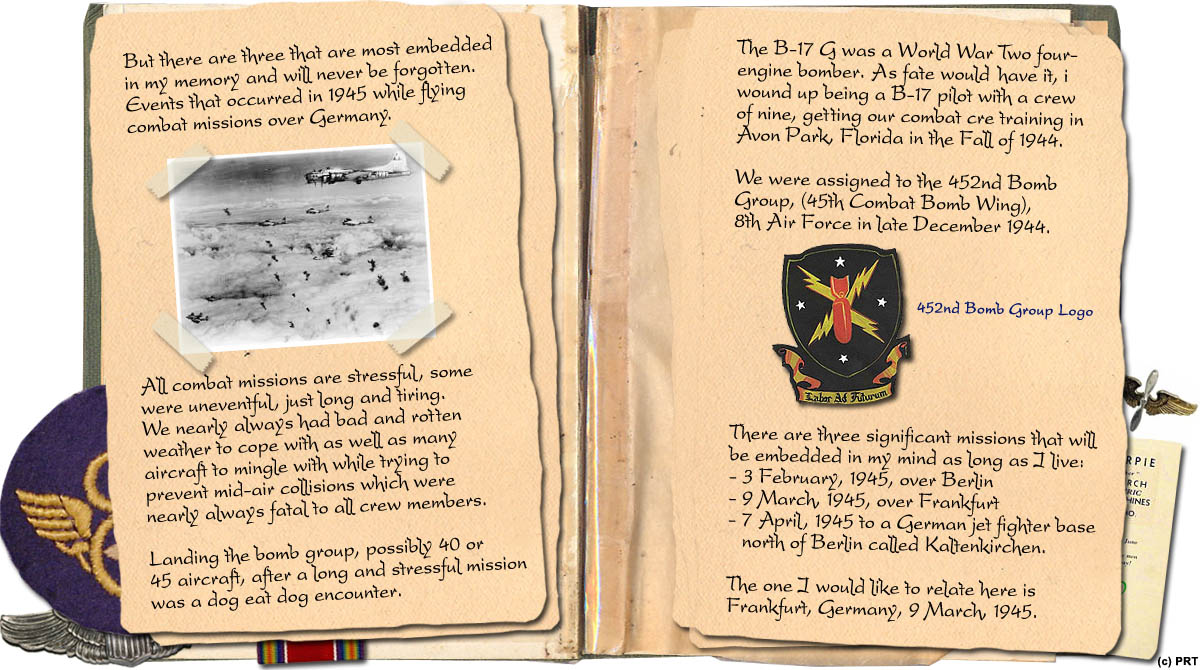 But there are three that are most embedded
in my memory and will never be forgotten.
Events that occurred in 1945 while flying
combat missions over Germany.
All combat missions are stressful, some
were uneventful, just long and tiring.
We nearly always had bad and rotten
weather to cope with as well as many
aircraft to mingle with while trying to
prevent mid-air collisions which were
nearly always fatal to all crew members.
Landing the bomb group, possibly 40 or
45 aircraft, after a long and stressful mission
was a dog eat dog encounter.
The B-17 G was a World War Two four-
engine bomber. As fate would have it, i
wound up being a B-17 pilot with a crew
of nine, getting our combat cre training in
Avon Park, Florida in the Fall of 1944.
We were assigned to the 452nd Bomb
Group, (45th Combat Bomb Wing),
8th Air Force in late December 1944.
452nd Bomb Group Logo
Labor Ad Futurum
There are three significant missions that will
be embedded in my mind as long as I live:
- 3 February, 1945, over Berlin
- 9 March, 1945, over Frankfurt
- 7 April, 1945 to a German jet fighter base
north of Berlin called Kaltenkirchen.
The one I would like to relate here is
Frankfurt, Germany, 9 March, 1945.
RPIE
RCH
RIC
HINES
June
men
(c) PRT